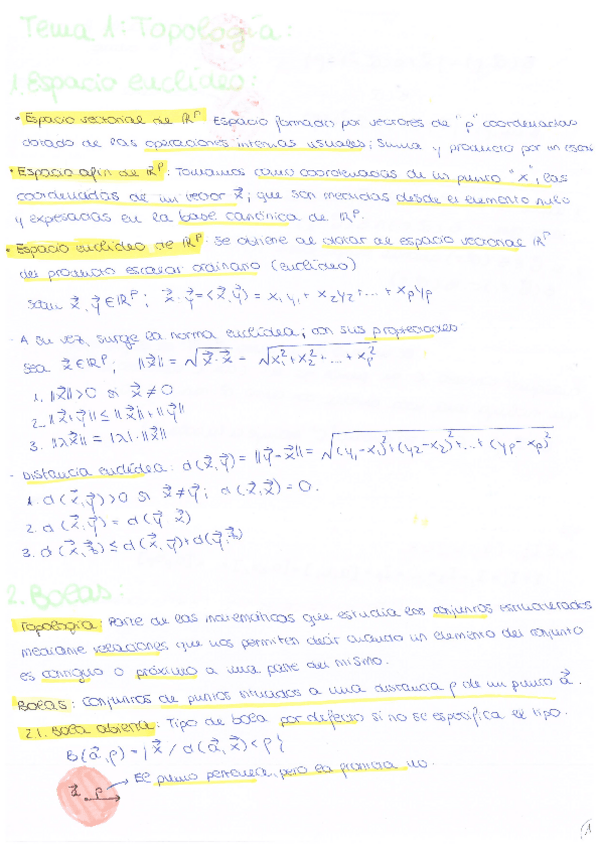 Tema 1: Topología:
1. Espacio euclídeo:
• Espacio vectorial de ℝᵖ: Espacio formado por vectores de "p" coordenadas
dotado de las operaciones internas usuales; Suma y producto por un escal
• Espacio afín de ℝᵖ: Tomamos como coordenadas de un punto "x", las
coordenadas de un vector x⃗; que son medidas desde el elemento nulo
y expresadas en la base canónica de ℝᵖ.
• Espacio euclídeo de ℝᵖ: Se obtiene al dotar al espacio vectorial ℝᵖ
del producto escalar ordinario (euclídeo)
Sean x⃗, y⃗ ∈ ℝᵖ; x⃗·y⃗ = <x⃗,y⃗> = x₁y₁ + x₂y₂ + ... + xₚyₚ
· A su vez, surge la norma euclídea; con sus propiedades:
Sea x⃗ ∈ ℝᵖ; ||x⃗|| = √(x⃗·x⃗) = √(x₁² + x₂² + ... + xₚ²)
1. ||x⃗|| > 0 si x⃗ ≠ 0
2. ||x⃗+y⃗|| ≤ ||x⃗|| + ||y⃗||
3. ||λx⃗|| = |λ|·||x⃗||
· Distancia euclídea: d(x⃗,y⃗) = ||y⃗-x⃗|| = √((y₁-x₁)² + (y₂-x₂)² + ... + (yₚ-xₚ)²)
1. d(x⃗,y⃗) > 0 si x⃗ ≠ y⃗; d(x⃗,x⃗) = 0.
2. d(x⃗,y⃗) = d(y⃗ x⃗)
3. d(x⃗,z⃗) ≤ d(x⃗,y⃗) + d(y⃗,z⃗)
2. Bolas:
Topología: Parte de las matemáticas que estudia los conjuntos estructurados
mediante relaciones que nos permiten decir cuando un elemento del conjunto
es contiguo o próximo a una parte del mismo.
Bolas: Conjuntos de puntos situados a una distancia ρ de un punto a⃗.
2.1. Bola abierta: Tipo de bola por defecto si no se especifica el tipo.
B(a⃗,ρ) = { x⃗ / d(a⃗,x⃗) < ρ }
a⃗ ρ → El punto pertenece, pero la frontera no.
1